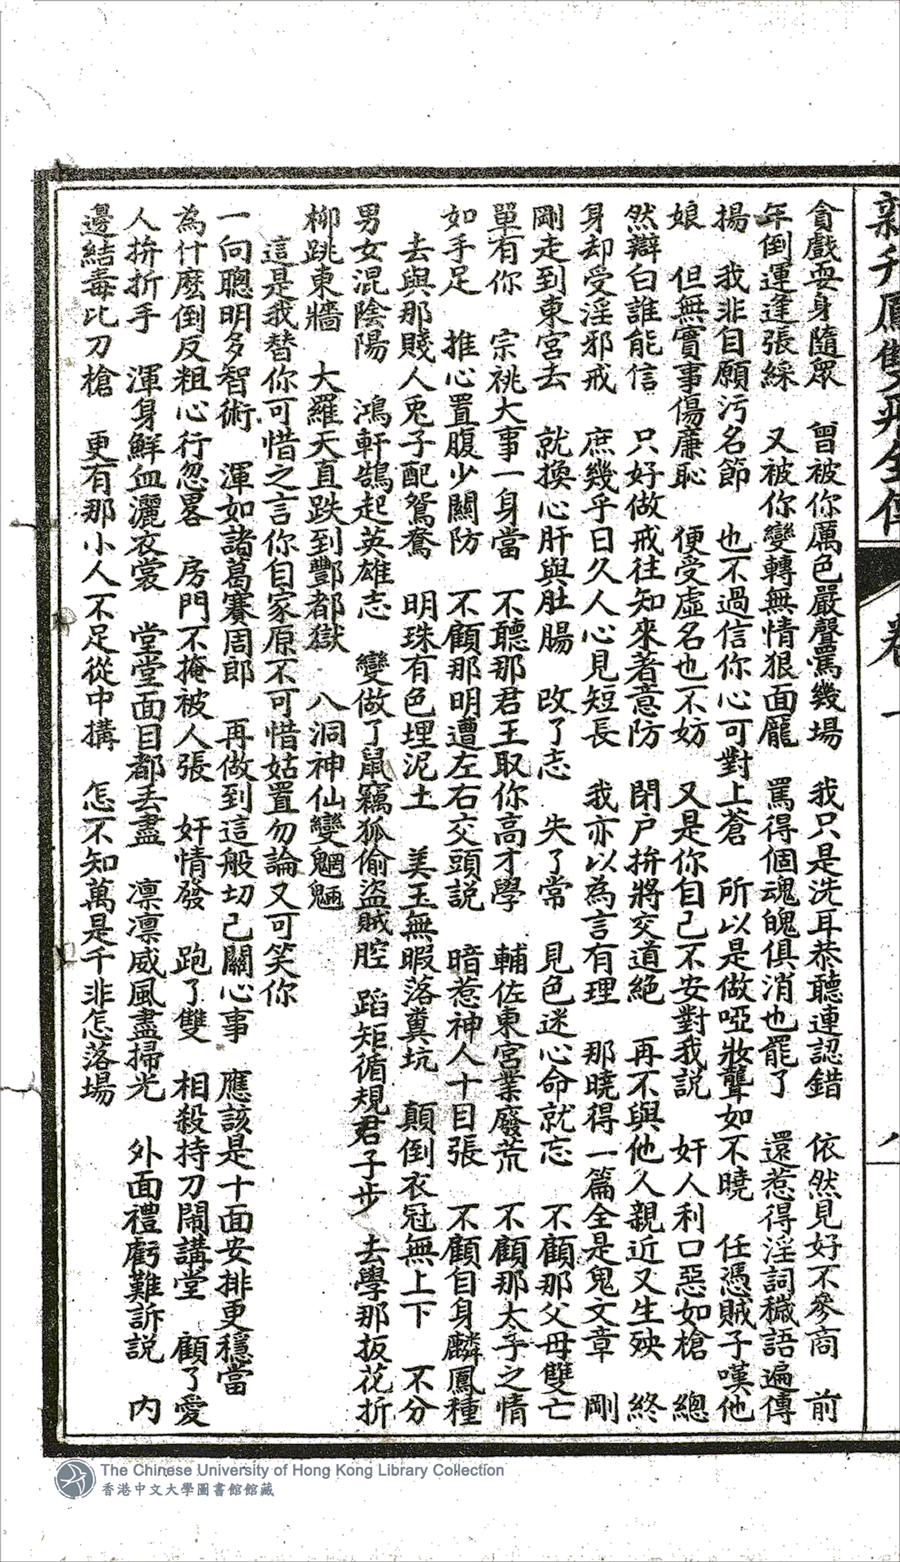 新刊鳳雙飛全傳 卷一 八
貪戲耍身隨眾　曾被你厲色嚴聲罵幾場　我只是洗耳恭聽連認錯　依然見好不參商　前
年倒運逢張綵　又被你變轉無情狠面龎　罵得個魂魄俱消也罷了　還惹得淫詞穢語遍傳
揚　我非目願污名節　也不過信你心可對上蒼　所以是做啞妝聾如不曉　任憑賊子嘆他
娘　但無實事傷廉恥　便受虛名也不妨　又是你自己不安對我説　奸人利口惡如槍　總
然辯白誰能信　只好做戒往知來著意防　閉户拚將交道絕　再不與他人親近又生殃　終
身却受淫邪戒　庶幾乎日久人心見短長　我亦以為言有理　那曉得一篇全是鬼文章　剛
剛走到東宮去　就換心肝與肚腸　改了志　失了常　見色迷心命就忘　不顧那父母雙亡
單有你　宗祧大事一身當　不聽那君王取你高才學　輔佐東宮業廢荒　不顧那太子之情
如手足　推心置腹少關防　不顧那明遭左右交頭説　暗惹神人十目張　不顧自身麟鳳種
去與那賤人兎子配鴛鴦　明珠有色埋泥土　美玉無暇落糞坑　顛倒衣冠無上下　不分
男女混陰陽　鴻軒鵠起英雄志　變做了鼠竊狐偷盜賊腔　蹈矩循規君子步　去學那扳花折
柳跳東牆　大羅天直跌到酆都獄　八洞神仙變魍魎
這是我替你可惜之言你自家原不可惜姑置勿論又可笑你
一向聰明多智術　渾如諸葛賽周郎　再做到這般切己關心事　應該是十面安排更穩當
為什麽倒反粗心行忽畧　房門不掩被人張　奸情發　跑了雙　相殺持刀鬧講堂　顧了愛
人拚折手　渾身鮮血灑衣裳　堂堂面目都丢盡　凛凛威風盡掃光　外面禮虧難訴説　内
邊結毒比刀槍　更有那小人不足從中搆　怎不知萬是千非怎落場
The Chinese University of Hong Kong Library Collection
香港中文大學圖書館館藏